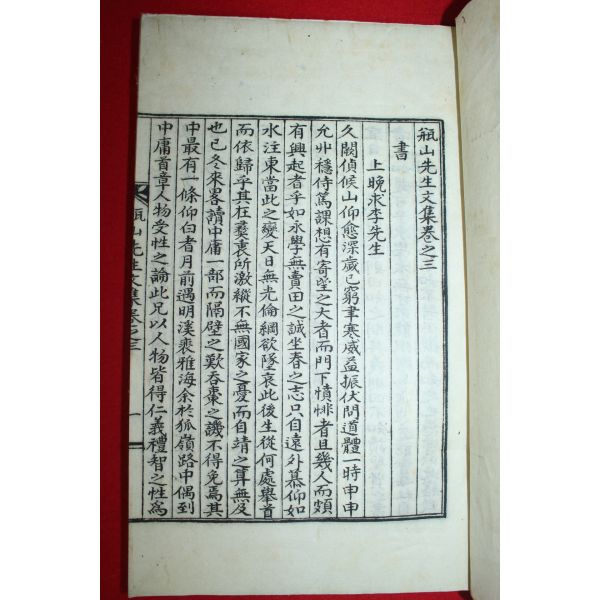 瓶山先生文集卷之三
書
上晚求李先生
久闕偵候山仰愈深歲已窮聿寒威益振伏問道體一時申申
允卝穩侍篤課想有寄望之大者而門下憤悱者且幾人而頗
有興起者乎如永學無賣田之誠坐春之志只自遠外慕仰如
水注東當此之變天日無光倫綱欲墜哀此後生從何處擧首
而依歸乎其在羣裏所激縱不無國家之憂而自靖之算無及
也已冬來畧讀中庸一部而隔壁之歎吞棗之譏不得免焉其
中最有一條仰白者月前遇明溪裵雅海余於狐嶺路中偶到
中庸首章人物受性之論此兄以人物皆得仁義禮智之性爲
瓶山先生文集卷之三
一